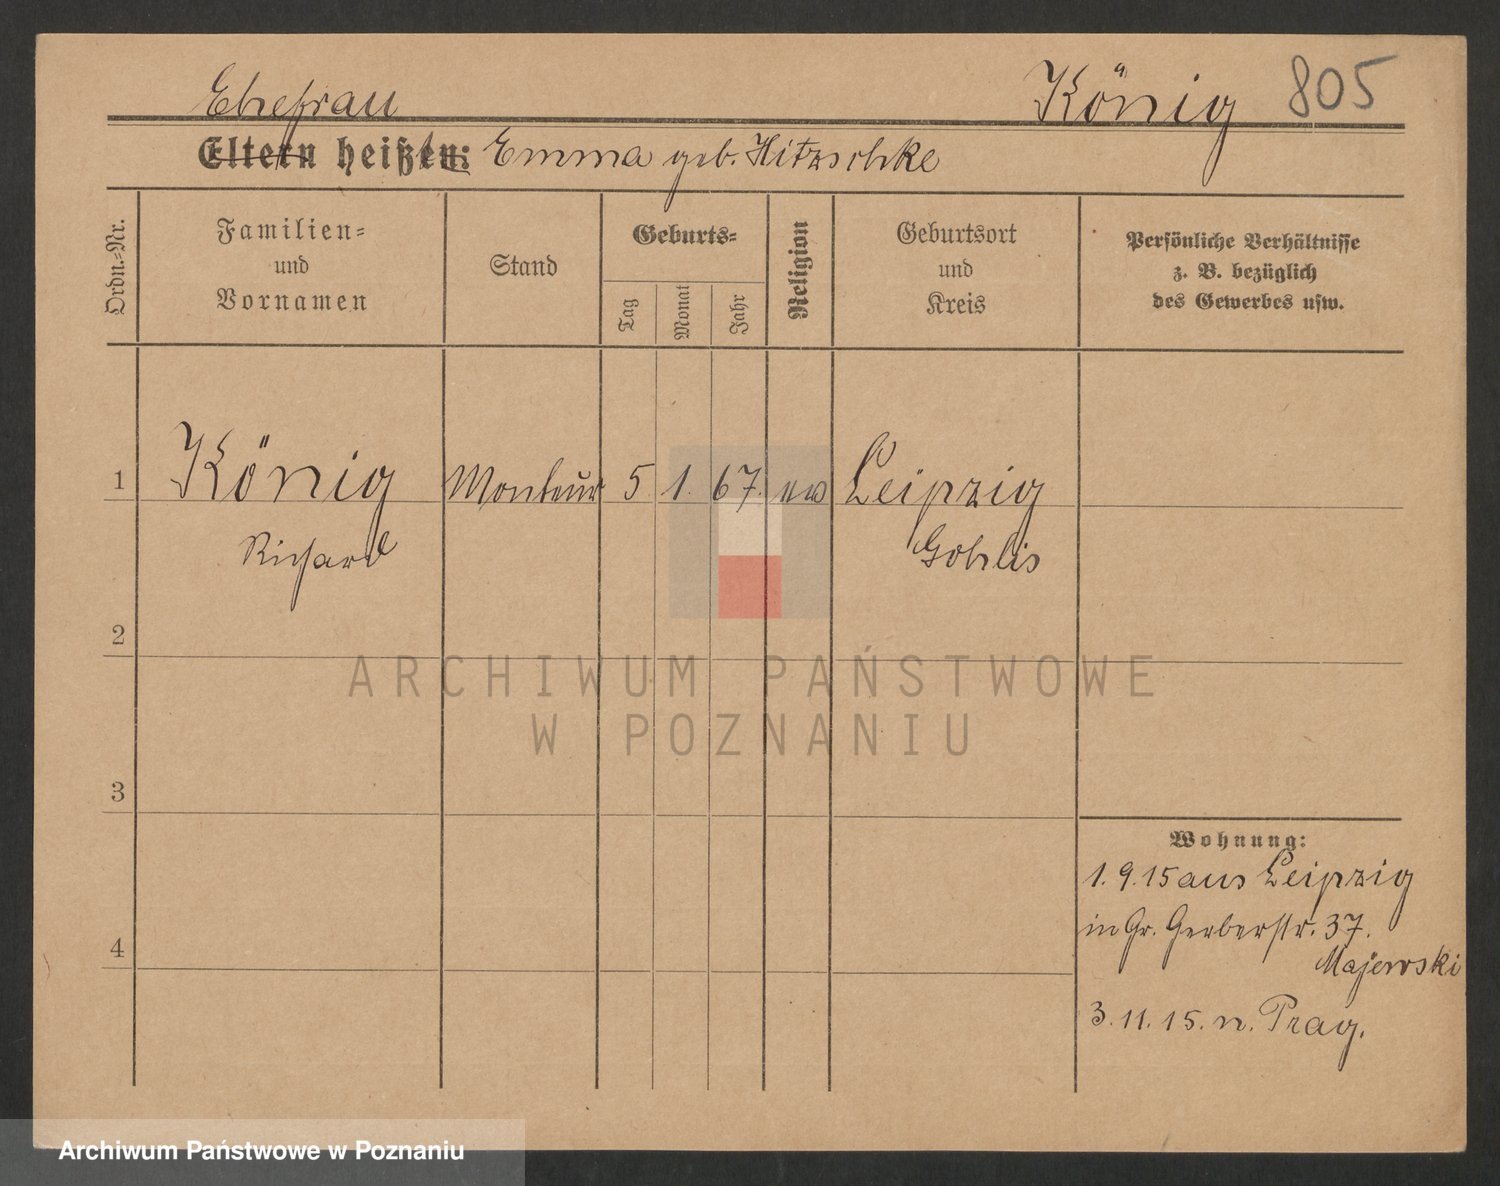 Ehefrau
König 805
Eltern heißen: Emma geb. Hitzschke
Ordn.-Nr.
Familien-
und
Vornamen
Stand
Geburts-
Tag
Monat
Jahr
Religion
Geburtsort
und
Kreis
Persönliche Verhältnisse
z. B. bezüglich
des Gewerbes usw.
1 König Monteur 5 1. 67. ev Leipzig
Richard Gohlis
2
3
4
Wohnung:
1. 9. 15 aus Leipzig
in Gr. Gerberstr. 37.
Majewski
3. 11. 15. n. Prag.
ARCHIWUM PAŃSTWOWE
W POZNANIU
Archiwum Państwowe w Poznaniu